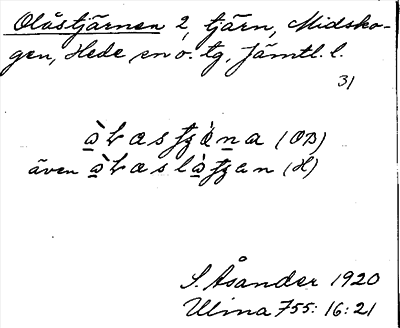 Olåstjärnen 2, tjärn, Midsko-
gen, Hede sn o. tg, Jämtl. l.
31
(OB)
även (H)
S. Åsander 1920
Ulma 755: 16: 21